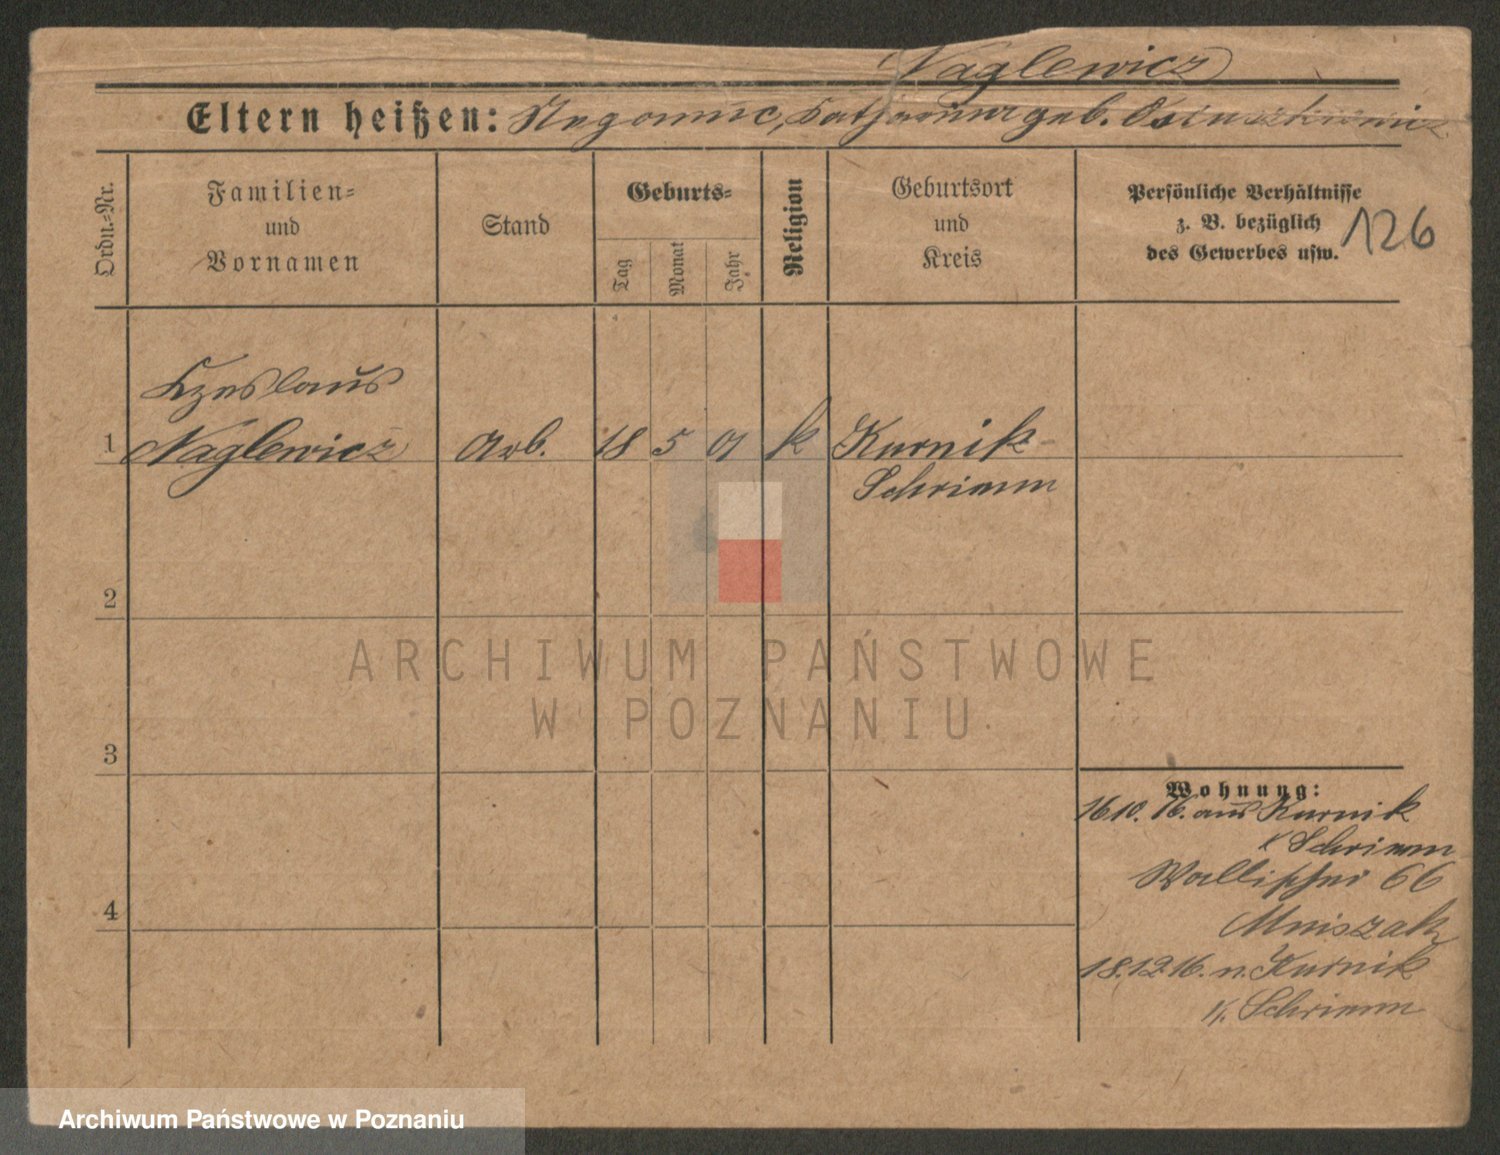 Naglewicz
Eltern heißen: Katharina geb.
Ordn.-Nr.
Familien-
und
Vornamen
Stand
Geburts-
Tag
Monat
Jahr
Religion
Geburtsort
und
Kreis
Persönliche Verhältnisse
z. B. bezüglich
des Gewerbes usw.
126
Czeslaus
1 Naglewicz Arb. 18 5 01 k Kurnik
Schrimm
2
3
4
Wohnung:
16.10.16. aus Kurnik
K Schrimm
Wallischei 66
Mniszak
18.12.16. n. Kurnik
K. Schrimm
ARCHIWUM PAŃSTWOWE
W POZNANIU
Archiwum Państwowe w Poznaniu